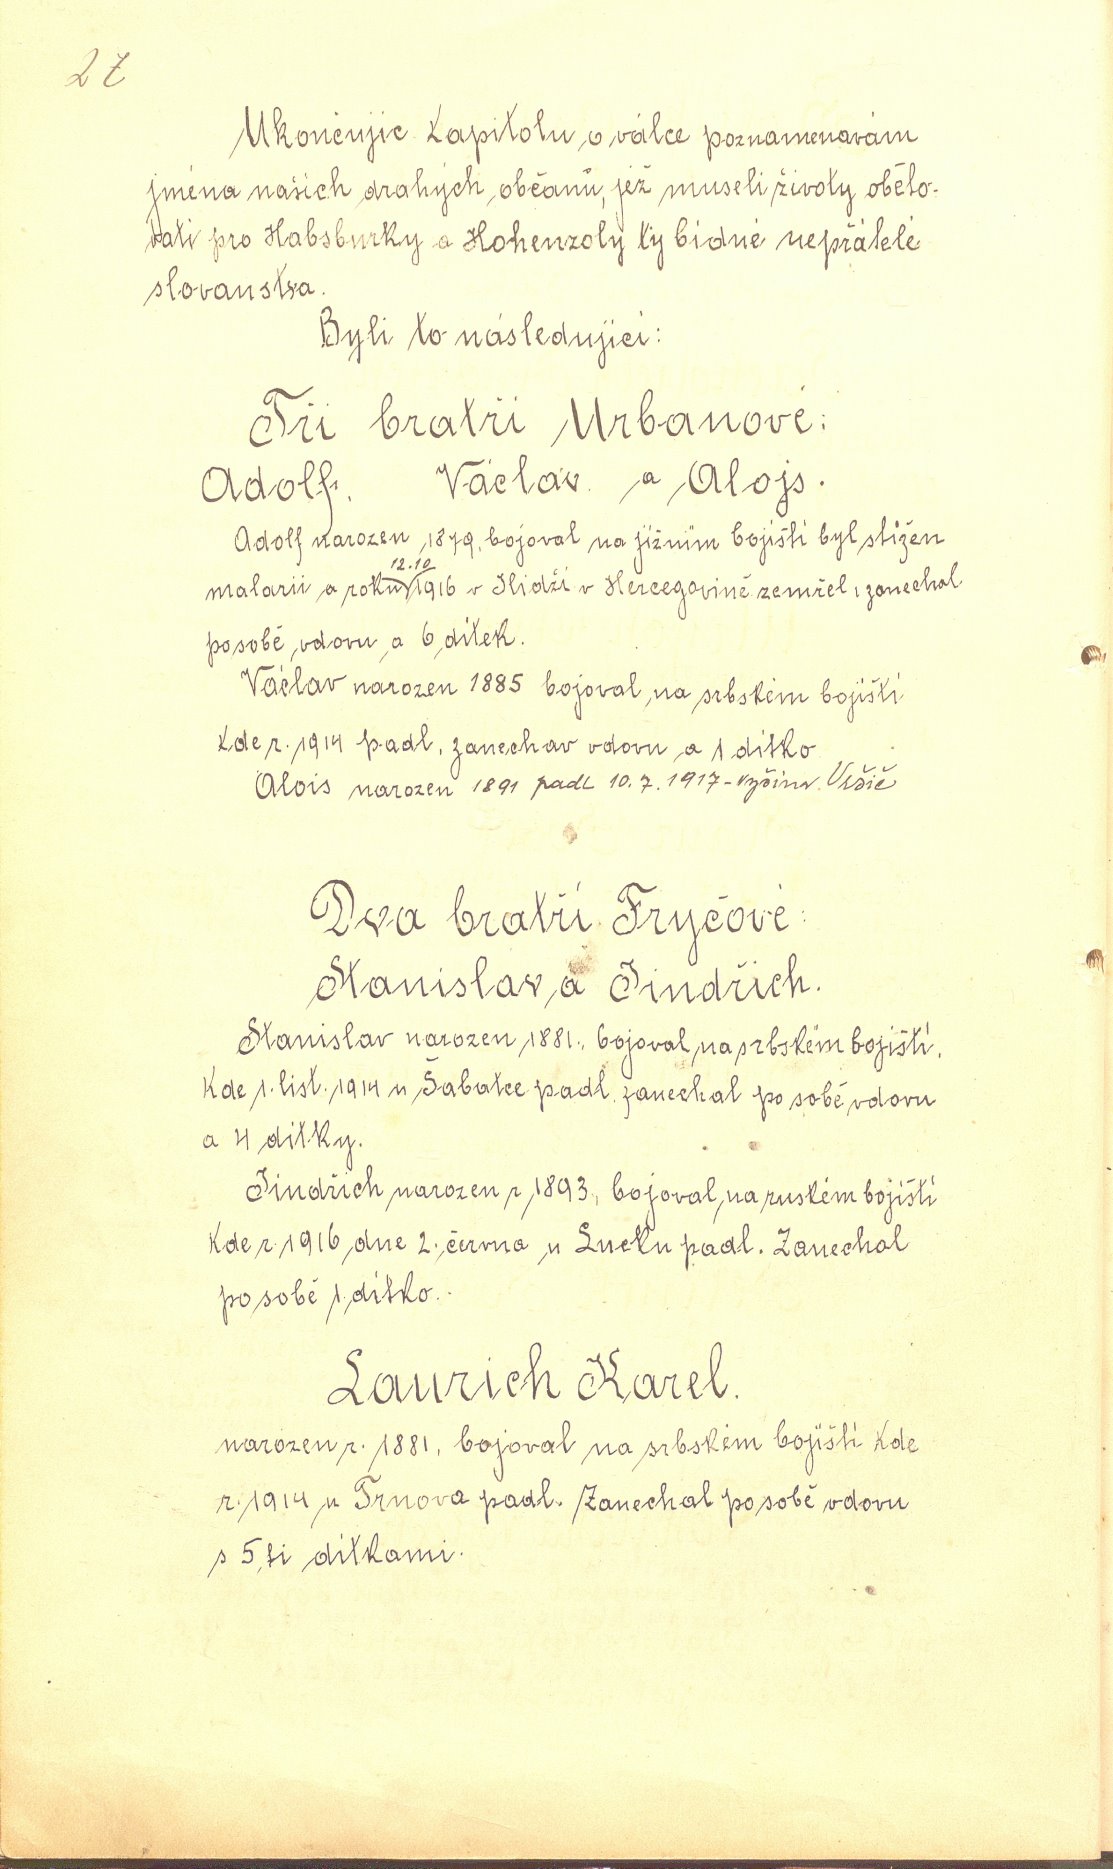 27
Ukončujíc kapitolu o válce poznamenávám
jména našich drahých občanů, jež museli životy oběto-
vati pro Habsburky a Hohenzoly ty bídné nepřátele
slovanstva.
Byli to následující:
Tři bratři Urbanové:
Adolf, Václav a Alojs.
Adolf narozen 1879, bojoval na jižním bojišti byl stižen
12.10
malarii a roku 1916 v Ilidži v Hercegovině zemřel, zanechal
po sobě vdovu a 6 dítek.
Václav narozen 1885 bojoval na srbském bojišti
kde r. 1914 padl, zanechav vdovu a 1 dítko
Alois narozen 1891 padl 10.7.1917 - výšina Vršič
Dva bratři Fryčové:
Stanislav a Jindřich.
Stanislav narozen 1881, bojoval na srbském bojišti,
kde 1. list. 1914 u Šabatce padl, zanechal po sobě vdovu
a 4 dítky.
Jindřich narozen r 1893, bojoval na ruském bojišti
kde r. 1916 dne 2. června u Lucku padl. Zanechal
po sobě 1 dítko.
Laurich Karel.
narozen r. 1881, bojoval na srbském bojišti kde
r. 1914 u Trnova padl. Zanechal po sobě vdovu
s 5,ti dítkami.